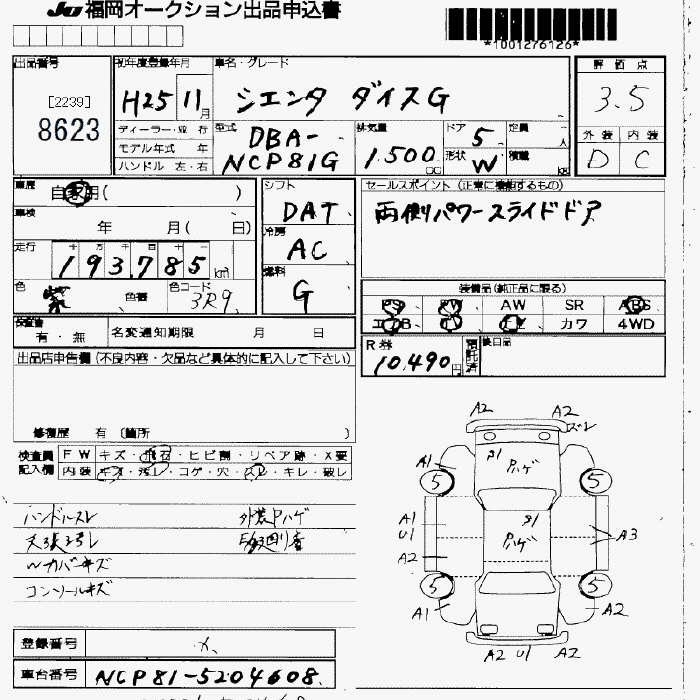 JU福岡オークション出品申込書
*1001276126*
出品番号
[2239]
8623
初年度登録年月
H25 11月
車名・グレード
シエンタ ダイスG
評価点
3.5
外装 内装
D C
ディーラー・並行
モデル年式 年
ハンドル 左・右
型式
DBA-
NCP81G
排気量
1.500
cc
ドア 5
形状 W
定員 人
積載 kg
車歴
自家用( )
車検
年 月( 日)
走行
十 万 千 百 十 一
193,785 km
色
紫 色替
色コード
3R9
シフト
DAT
冷房
AC
燃料
G
セールスポイント(正常に機能するもの)
両側パワースライドドア
装備品(純正品に限る)
PS PW AW SR ABS
カワ 4WD
保証書
有・無
名変通知期限 月 日
R券
10,490円
預託済
後日品
出品店申告欄(不良内容・欠品など具体的に記入して下さい)
修復歴 有 〔箇所 〕
検査員
記入欄
FW キズ・飛石・ヒビ割・リペア跡・X要
内装 キズ・汚レ・コゲ・穴・スレ・キレ・破レ
ハンドルスレ
外装Pハゲ
天張汚レ
Wカバーキズ
コンソールキズ
A2 A2
スレ
A1
Pハゲ
5 5
A1
U1
A2
Pハゲ
A3
5 5
A1 A2
A2 U1 A2
登録番号
車台番号
NCP81-5204608